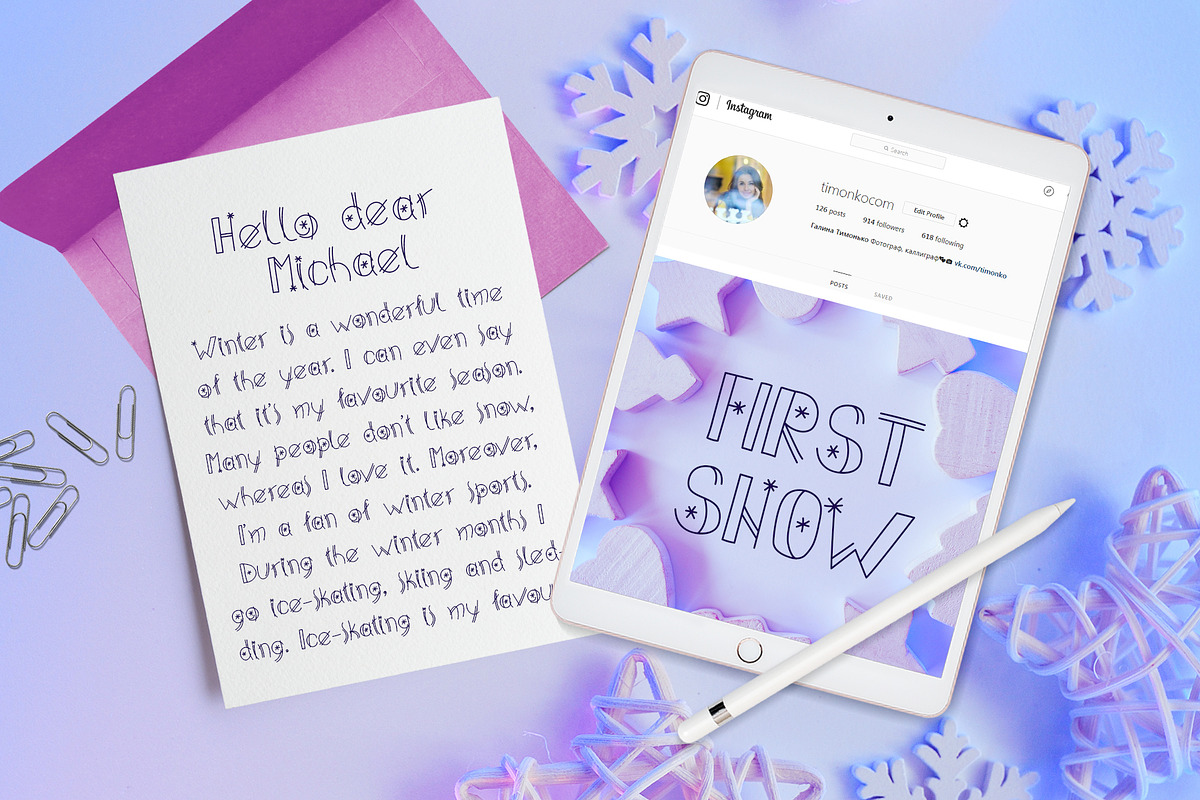 Hello dear
Michael
Winter is a wonderful time
of the year. I can even say
that it's my favourite season.
Many people don't like snow,
whereas I love it. Moreover,
I'm a fan of winter sports.
During the winter months I
go ice-skating, skiing and sled-
ding. Ice-skating is my favou
Instagram
Search
timonkocom
Edit Profile
126 posts 914 followers 618 following
Галина Тимонько Фотограф, каллиграф vk.com/timonko
POSTS SAVED
FIRST
SNOW